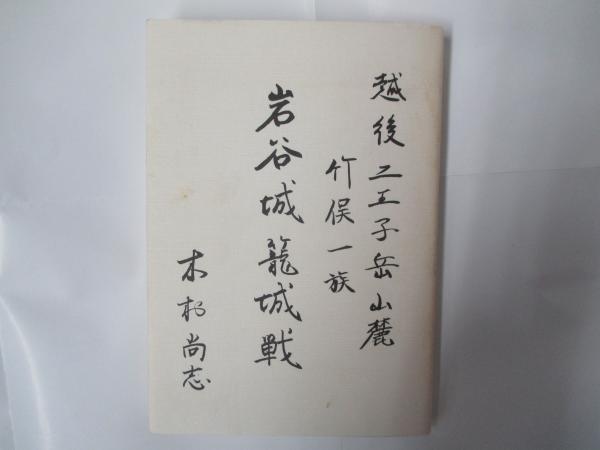 越後二王子岳山麓
竹俣一族
岩谷城籠城戦
木村尚志